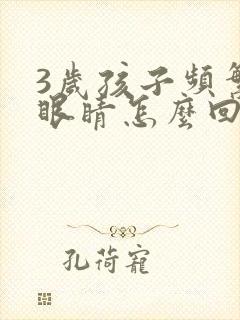 3歲孩子頻繁
眼睛怎麼回
孔荷寵